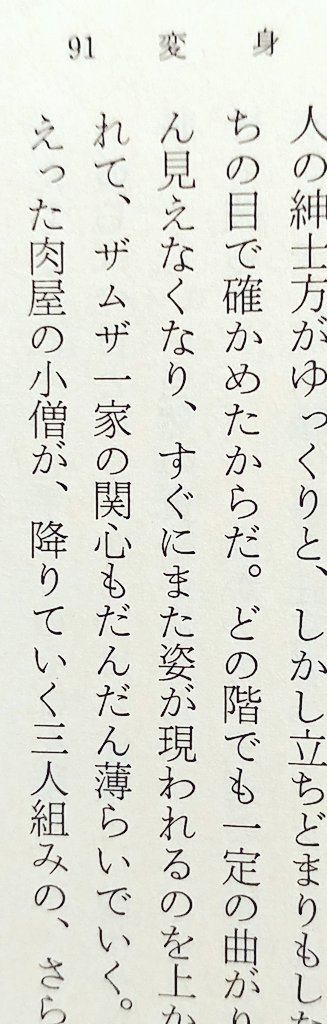 91 変身
人の紳士方がゆっくりと、しかし立ちどまりもした
ちの目で確かめたからだ。どの階でも一定の曲がり
ん見えなくなり、すぐにまた姿が現われるのを上か
れて、ザムザ一家の関心もだんだん薄らいでいく。
えった肉屋の小僧が、降りていく三人組みの、さら